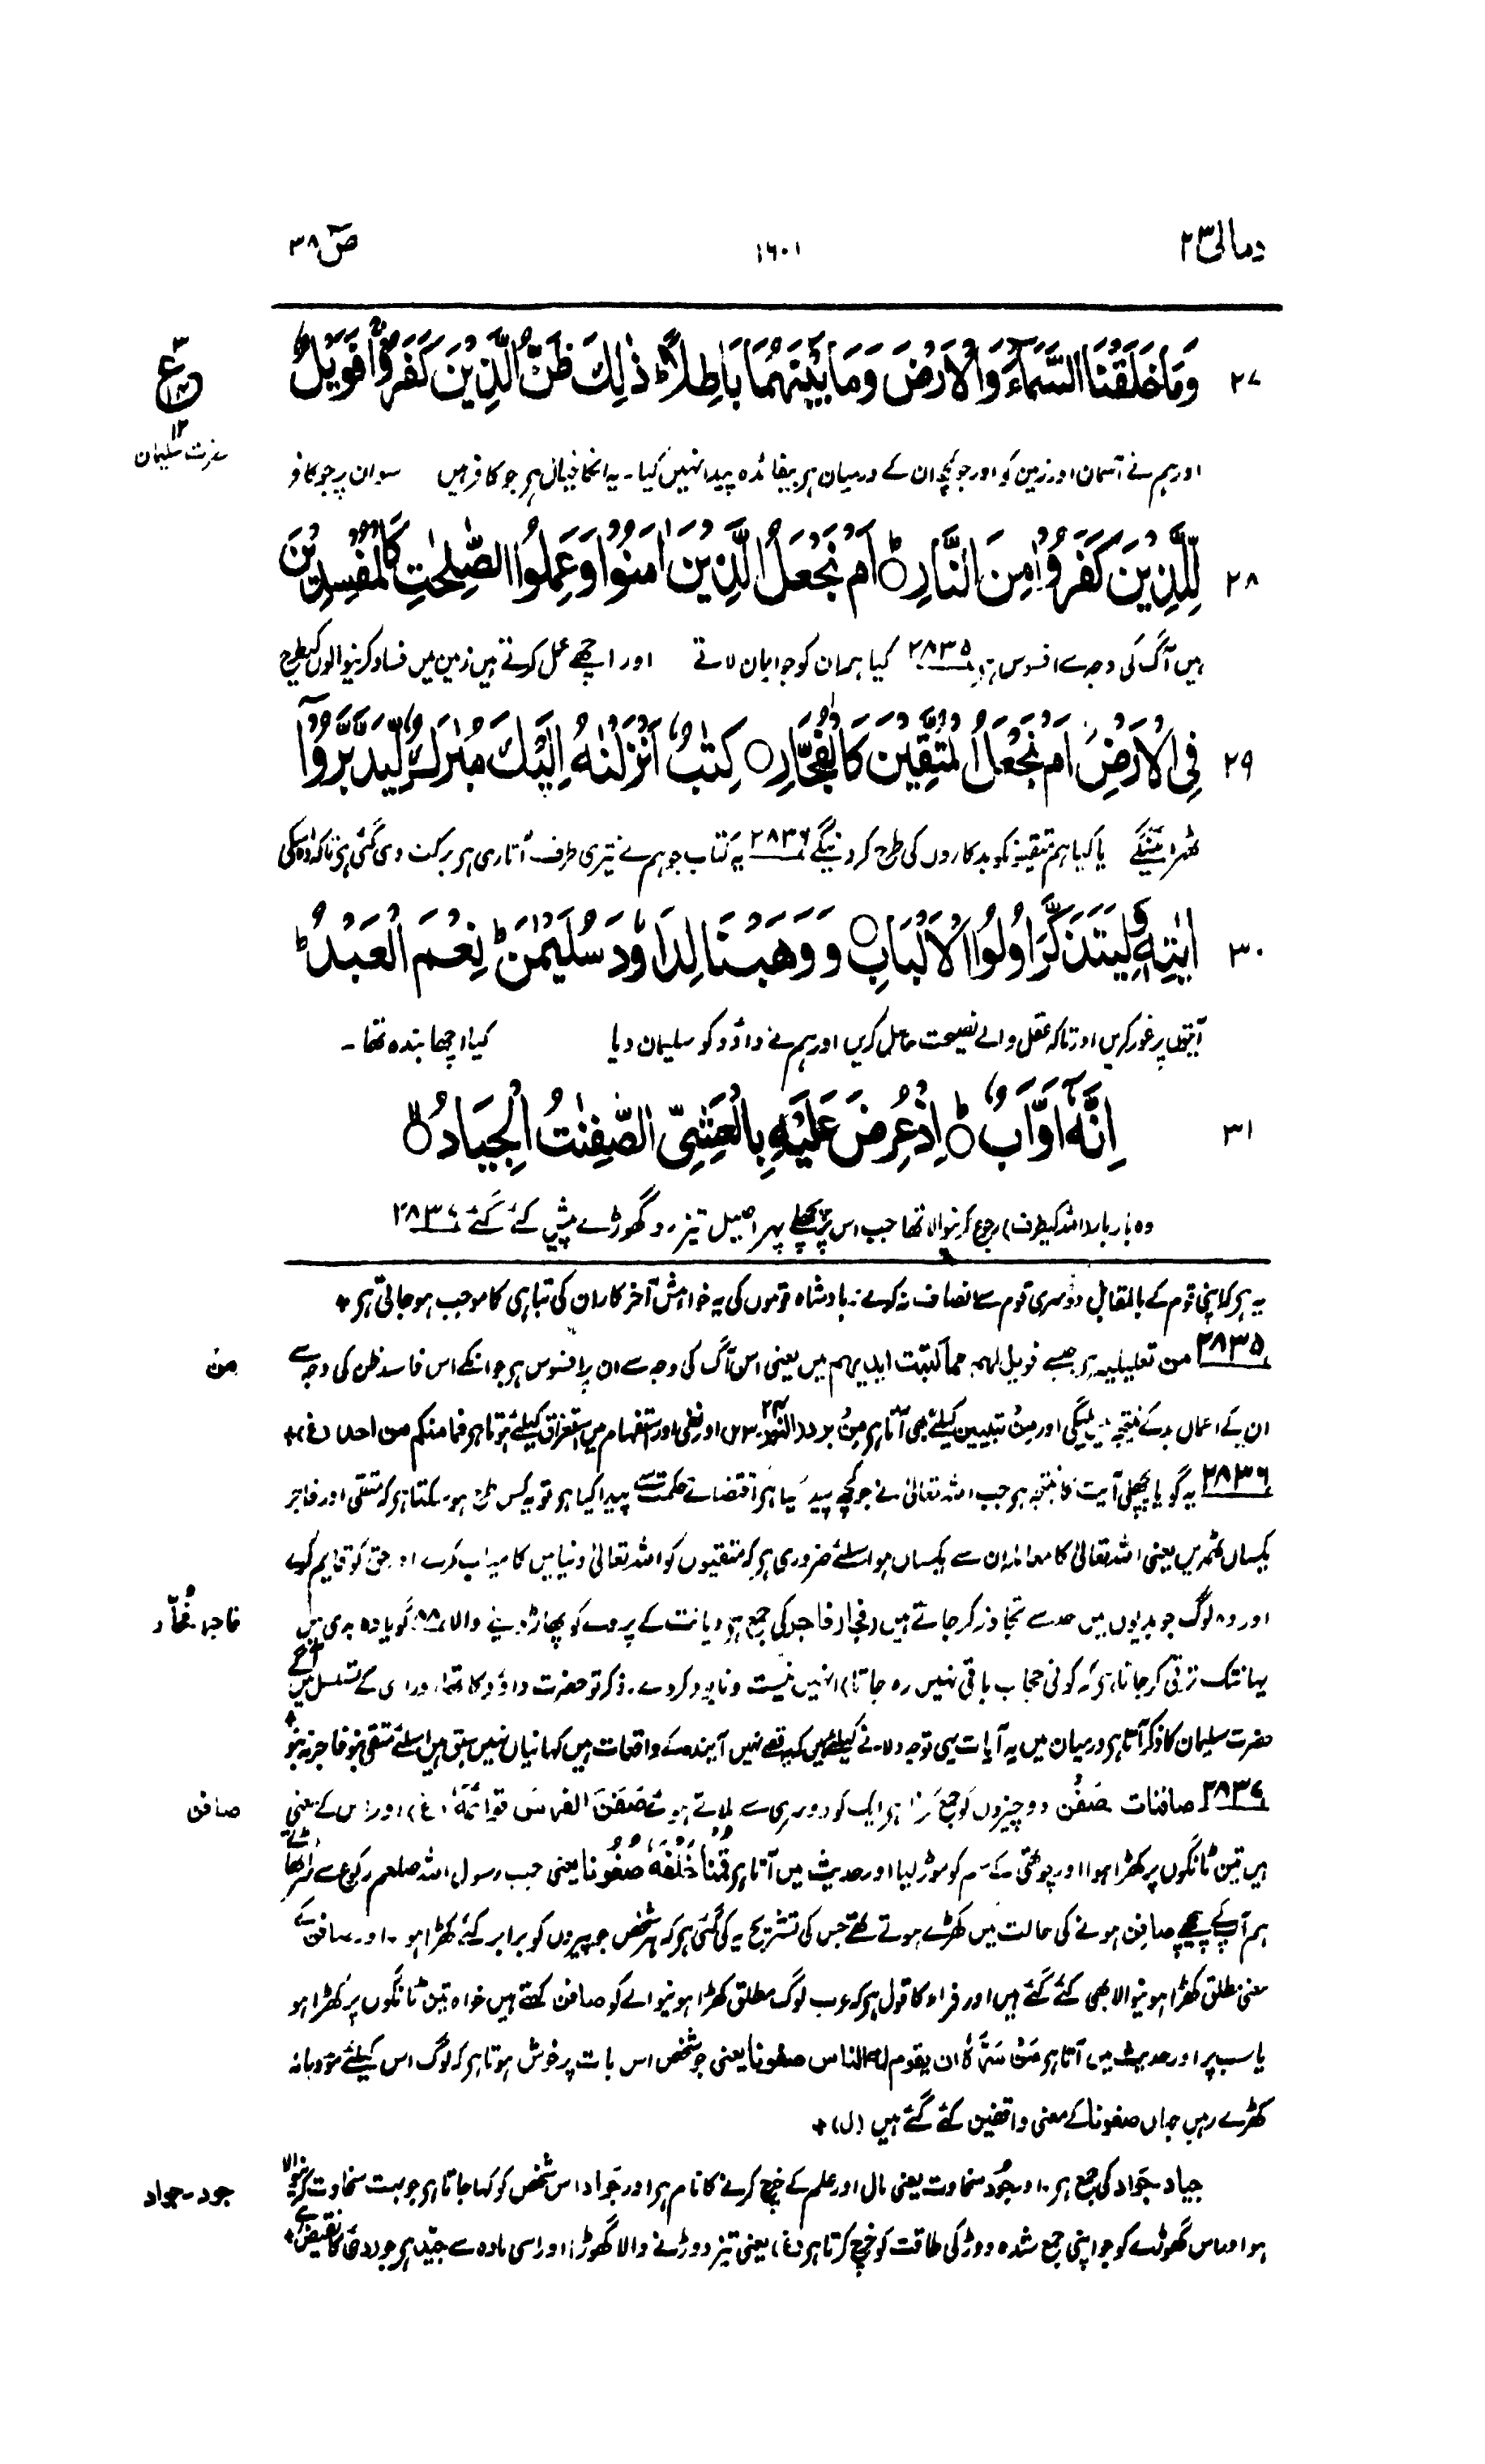 ومالی ۲۳
۱۶۰۱
صٓ ۳۸
۲۷ وَمَا خَلَقْنَا السَّمَآءَ وَالْاَرْضَ وَمَا بَيْنَهُمَا بَاطِلًا ؕ ذٰلِكَ ظَنُّ الَّذِيْنَ كَفَرُوْا ۚ فَوَيْلٌ
ع
۱۲
حضرت سلیمان
اور ہم نے آسمان اور زمین کو اور جو کچھ ان کے درمیان ہر بیفائدہ پیدا نہیں کیا۔ یہ انکا خیال ہر جو کافر ہیں سو ان پر جو کافر
۲۸ لِّلَّذِيْنَ كَفَرُوْا مِنَ النَّارِ ؕ اَمْ نَجْعَلُ الَّذِيْنَ اٰمَنُوْا وَعَمِلُوا الصّٰلِحٰتِ كَالْمُفْسِدِيْنَ
ہیں آگ کی وجہ سے افسوس ہر ۲۸۳۵ کیا ہم ان کو جو ایمان لاتے اور اچھے عمل کرتے ہیں زمین میں فساد کرنیوالوں کیطرح
۲۹ فِی الْاَرْضِ ۫ اَمْ نَجْعَلُ الْمُتَّقِيْنَ كَالْفُجَّارِ ○ كِتٰبٌ اَنْزَلْنٰهُ اِلَيْكَ مُبٰرَكٌ لِّيَدَّبَّرُوْٓا
ٹھرائینگے یا کیا ہم متقیونکو بدکاروں کی طرح کردینگے ۲۸۳۶ یہ کتاب جو ہم نے تیری طرف اُتاری ہر برکت دی گئی ہر تاکہ وہ اسکی
۳۰ اٰيٰتِهٖ وَلِيَتَذَكَّرَ اُولُوا الْاَلْبَابِ ○ وَوَهَبْنَا لِدَاوٗدَ سُلَيْمٰنَ ؕ نِعْمَ الْعَبْدُ ؕ
آیتوں پر غور کریں اور تاکہ عقل والے نصیحت حاصل کریں اور ہم نے داؤد کو سلیمان دیا کیا اچھا بندہ تھا۔
۳۱ اِنَّهٗٓ اَوَّابٌ ؕ اِذْ عُرِضَ عَلَيْهِ بِالْعَشِیِّ الصّٰفِنٰتُ الْجِيَادُ ۙ
وہ بار بار (اللہ کیطرف) رجوع کرنیوالا تھا جب اس پر پچھلے پہر اصیل تیز رو گھوڑے پیش کئے گئے ۲۸۳۷
یہ ہر کہ اپنی قوم کے بالمقابل دوسری قوم سے انصاف نہ کرے۔ بادشاہ قوموں کی یہ خواہش آخر کار ان کی تباہی کا موجب ہو جاتی ہر +
۲۸۳۵ من تعلیلیہ ہر جیسے فویل لہم مما کتبت ایدیہم میں یعنی اس آگ کی وجہ سے ان پر افسوس ہر جو انکے اس فاسد ظن کی وجہ سے
من
ان کے اعمال بد کے نتیجہ میں ملیگی اور مِنْ تبیین کیلئے بھی آتا ہر مِنْ برد اور نفی اور استفہام میں استغراق کیلئے ہوتا ہر فما منکم من احد (غ) +
۲۸۳۶ یہ گویا پچھلی آیت کا نتیجہ ہر جب اللہ تعالیٰ نے جو کچھ پیدا کیا ہر اقتضائے حکمت سے پیدا کیا ہر تو یہ کس طرح ہو سکتا ہر کہ متقی اور فاجر
یکساں ٹھریں یعنی اللہ تعالیٰ کا معاملہ ان سے یکساں ہو اسلئے ضروری ہر کہ متقیوں کو اللہ تعالیٰ دنیا میں کامیاب کرے اور حق کو قایم کرے
اور وہ لوگ جو بدیوں میں حد سے تجاوز کر جاتے ہیں (فجار فاجر کی جمع ہر دیانت کے پردے کو پھاڑ دینے والا، گویا وہ بدی میں
فاجر۔ فُجَّار
یہانتک ترقی کر جاتا ہر کہ کوئی حجاب باقی نہیں رہ جاتا) انہیں نیست و نابود کردے۔ ذکر تو حضرت داؤد کا تھا اور اسی کے تسلسل میں آگے
حضرت سلیمان کا ذکر آتا ہر درمیان میں یہ آیات یہی توجہ دلانے کیلئے ہیں کہ یہ قصے نہیں آیندہ کے واقعات ہیں کہانیاں نہیں سبق ہیں اسلئے متقی بنو فاجر نہ بنو +
۲۸۳۷ صافنات صَفْن دو چیزوں کو جمع کرنا ہر ایک کو دوسری سے ملاتے ہوئے صَفَنَ الفرسُ قوائمَهٗ (غ) اور اس کے معنی
صافن
ہیں تین ٹانگوں پر کھڑا ہوا اور چوتھی کے سُم کو موڑ لیا اور حدیث میں آتا ہر قُمْنَا خَلْفَهٗ صُفُوْنًا یعنی جب رسول اللہ صلعم رکوع سے سر اٹھاتے
ہم آپ کے پیچھے صافن ہونے کی حالت میں کھڑے ہوتے تھے جس کی تشریح یہ کی گئی ہر کہ ہر شخص جو پیروں کو برابر کئے کھڑا ہو۔ اور صافن کے
معنی مطلق کھڑا ہونیوالا بھی کئے گئے ہیں اور فراء کا قول ہر کہ عرب لوگ مطلق کھڑا ہونیوالے کو صافن کہتے ہیں خواہ تین ٹانگوں پر کھڑا ہو
یا سب پر اور حدیث میں آتا ہر مَنْ سَرَّهٗ ان یقوم له الناس صفونا یعنی جو شخص اس بات پر خوش ہوتا ہر کہ لوگ اس کیلئے مؤدبانہ
کھڑے رہیں جہاں صفونا کے معنی واقفین کئے گئے ہیں (ل) +
جیاد۔ جَواد کی جمع ہر۔ اور جُوْد سخاوت یعنی مال اور علم کے خرچ کرنے کا نام ہر اور جَواد اس شخص کو کہا جاتا ہر جو بہت سخاوت کرنیوالا
جود۔ جواد
ہو اور اس گھوڑے کو جو اپنی جمع شدہ دوڑ کی طاقت کو خرچ کرتا ہر (غ) یعنی تیز دوڑنے والا گھوڑا اور اسی مادہ سے جَیِّد ہر جو ردی کا نقیض ہے +